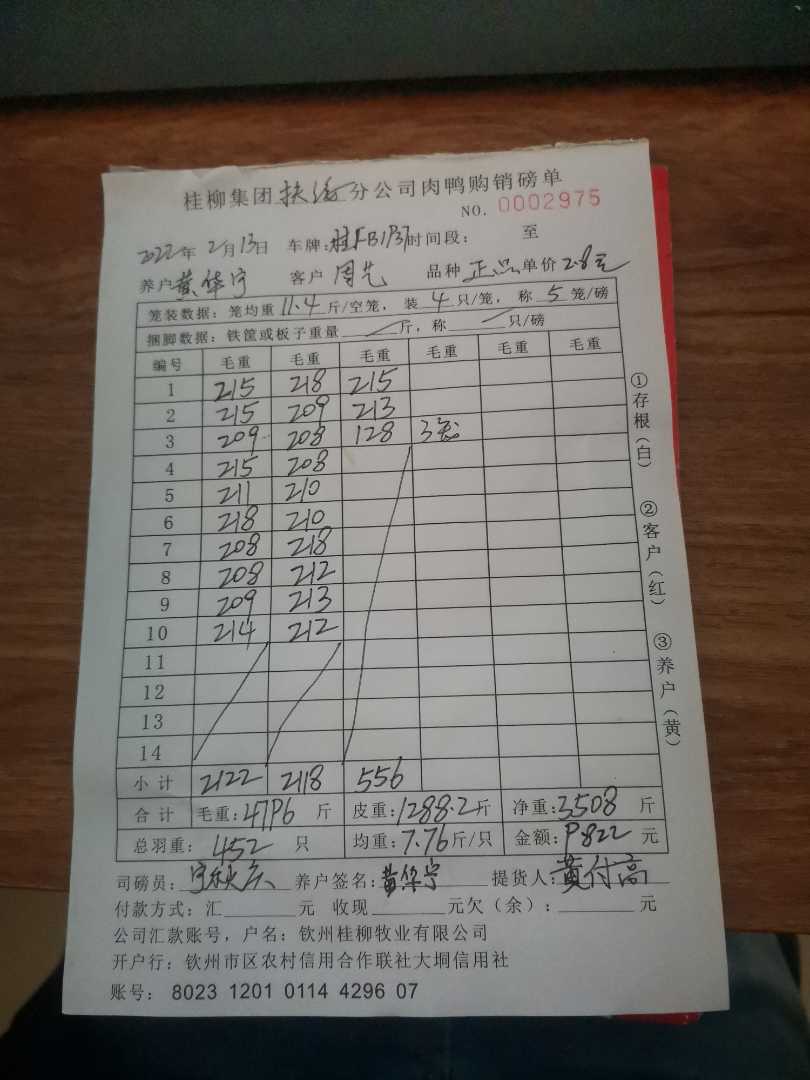 桂柳集团扶绥分公司肉鸭购销磅单
NO. 0002975
2022年2月13日 车牌:桂FB1P37时间段: 至
养户黄华宇 客户周先 品种正品单价2.8元
笼装数据: 笼均重11.4斤/空笼, 装4只/笼, 称5笼/磅
捆脚数据: 铁筐或板子重量 斤, 称 只/磅
编号 毛重 毛重 毛重 毛重 毛重 毛重
1 215 218 215
2 215 209 213
3 209 208 128 3笼
4 215 208
5 211 210
6 218 210
7 208 218
8 208 212
9 209 213
10 214 212
11
12
13
14
小计 2122 2118 556
合计 毛重:4796斤 皮重:1288.2斤 净重:3508斤
总羽重: 452只 均重:7.76斤/只 金额:9822元
司磅员: 养户签名:黄华宇 提货人:黄付高
付款方式: 汇 元 收现 元欠(余): 元
公司汇款账号, 户名: 钦州桂柳牧业有限公司
开户行: 钦州市区农村信用合作联社大垌信用社
账号: 8023 1201 0114 4296 07
①存根(白)
②客户(红)
③养户(黄)